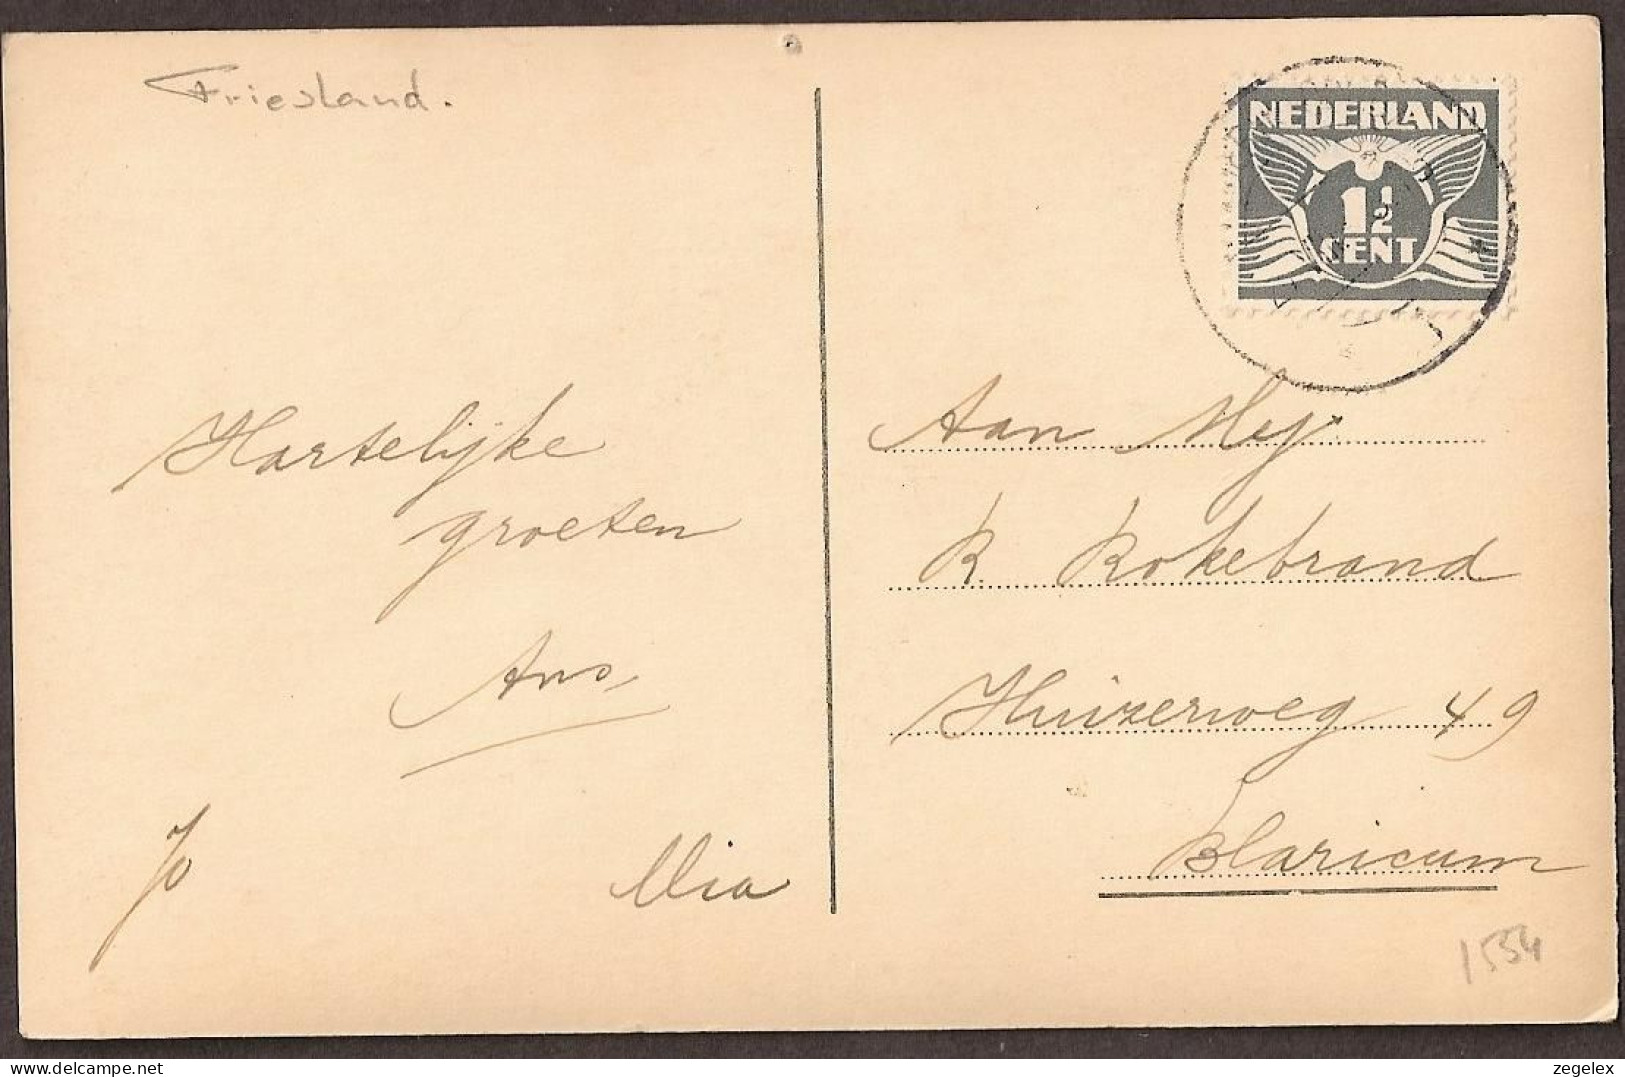 Friesland.
NEDERLAND
1½
CENT
Hartelijke
groeten
Ans
Jo
Mia
Aan Mej.
R. Rokebrand
Huizerweg 49
Blaricum
1554
delcampe.net
zegelex